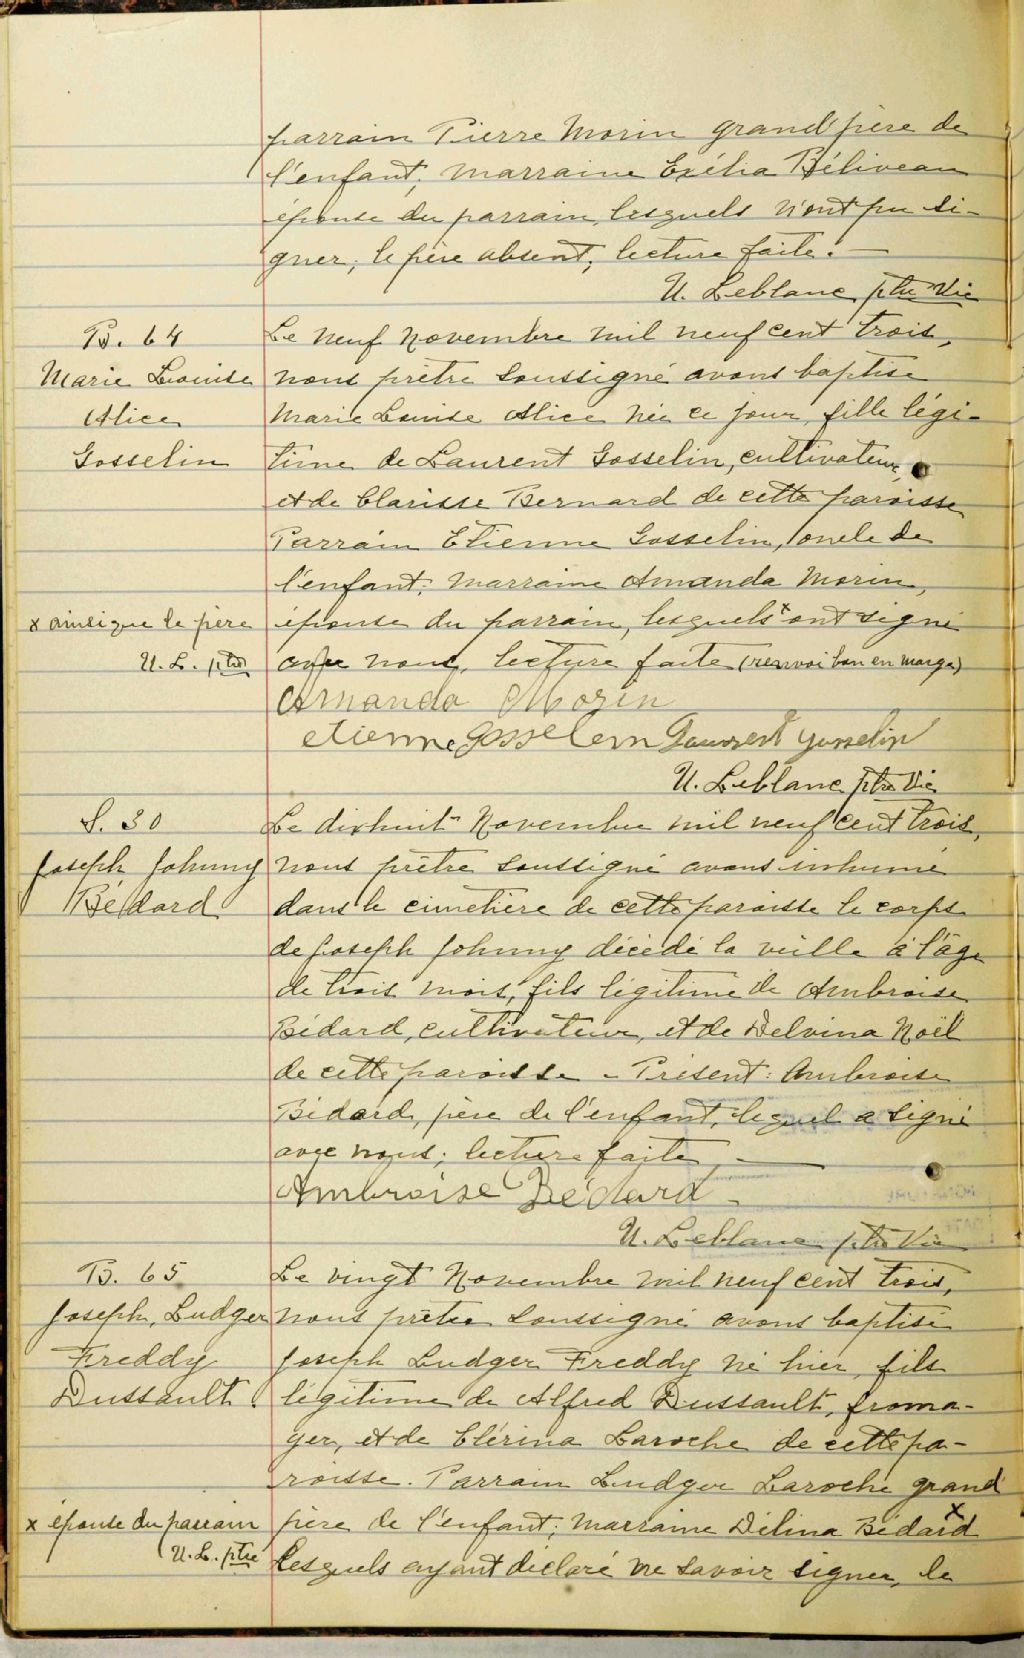 parrain Pierre Morin grand'père de
l'enfant; marraine Exélia Béliveau
épouse du parrain, lesquels n'ont pu si-
gner; le père absent; lecture faite. —
U. Leblanc ptre Vic
B. 64
Marie Louise
Alice
Gosselin
Le neuf Novembre mil neuf cent trois,
nous prêtre soussigné avons baptisé
Marie Louise Alice née ce jour, fille légi-
time de Laurent Gosselin, cultivateur,
et de Clarisse Bernard de cette paroisse
Parrain Etienne Gosselin, oncle de
l'enfant; marraine Amanda Morin,
épouse du parrain, lesquels x ont signé
avec nous, lecture faite (renvoi bon en marge)
x ainsi que le père
U. L. ptre
Amanda Morin
etienne gosselin Laurent gosselin
U. Leblanc ptre Vic
S. 30
Joseph Johnny
Bédard
Le dixhuit Novembre mil neuf cent trois,
nous prêtre soussigné avons inhumé
dans le cimetière de cette paroisse le corps
de Joseph Johnny décédé la veille à l'âge
de trois mois, fils légitime de Ambroise
Bédard, cultivateur, et de Delvina Noël
de cette paroisse - Présent: Ambroise
Bédard, père de l'enfant, lequel a signé
avec nous; lecture faite, —
Ambroise Bédard -
U. Leblanc ptre Vic
B. 65
Joseph, Ludger
Freddy
Dussault.
Le vingt Novembre mil neuf cent trois,
nous prêtre soussigné avons baptisé
Joseph Ludger Freddy né hier, fils
légitime de Alfred Dussault, froma-
ger, et de Clérina Laroche de cette pa-
roisse. Parrain Ludger Laroche grand
père de l'enfant; marraine Délina Bédard x
lesquels ayant déclaré ne savoir signer, le
x épouse du parrain
U. L. ptre